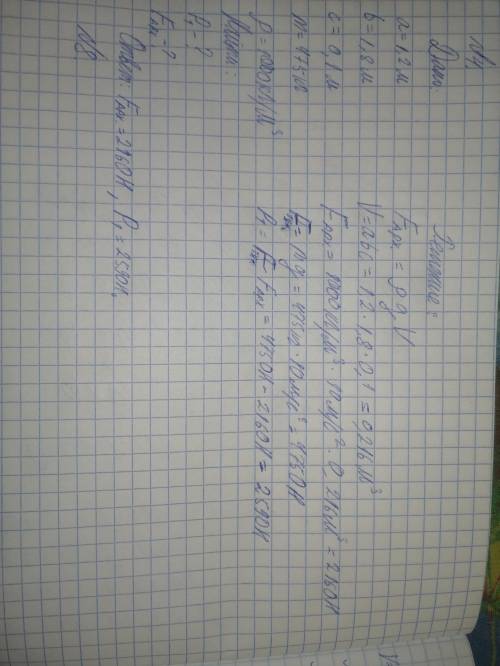 №1.
Дано:
a = 1,2 м
b = 1,8 м
c = 0,1 м
m = 475 кг
ρ = 1000 кг/м³
Найти:
P₁ - ?
Fарх - ?
Решение:
Fарх = ρgV
V = abc = 1,2 · 1,8 · 0,1 = 0,216 м³
Fарх = 1000 кг/м³ · 10 м/с² · 0,216 м³ = 2160 Н
= mg = 475 кг · 10 м/с² = 4750 Н
P₁ = - Fарх = 4750 Н - 2160 Н = 2590 Н
Ответ: Fарх = 2160 Н, P₁ = 2590 Н.
№2.